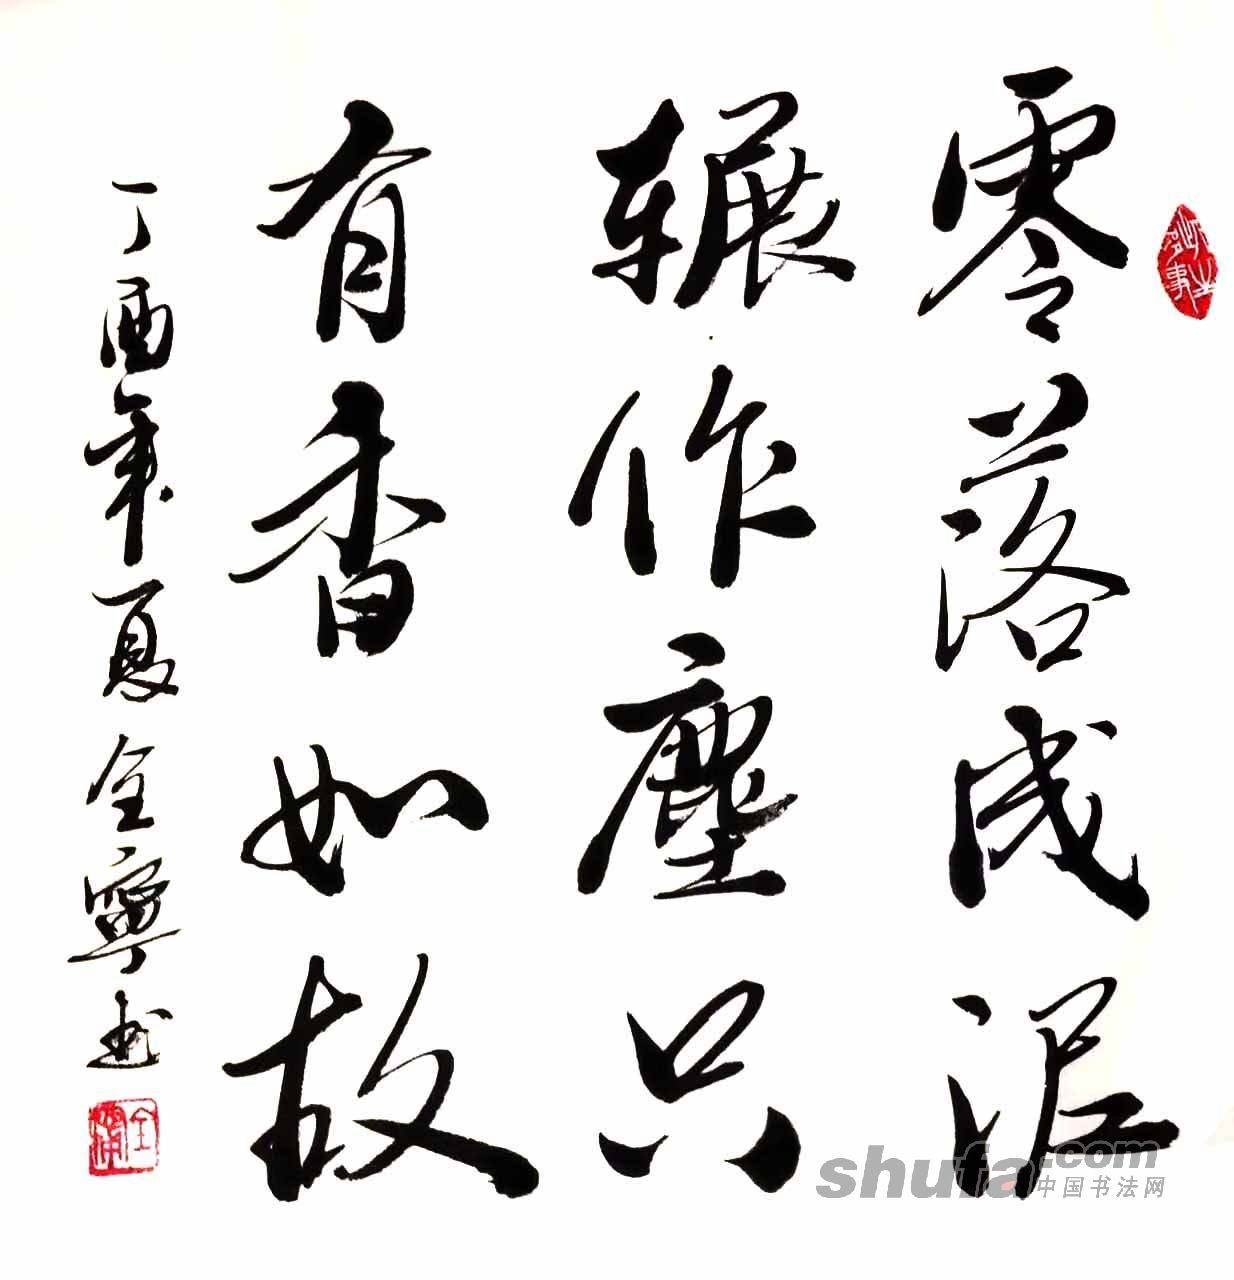 零落成泥
辗作塵只
有香如故
丁酉年夏全寧书
shufa.com
中国书法网